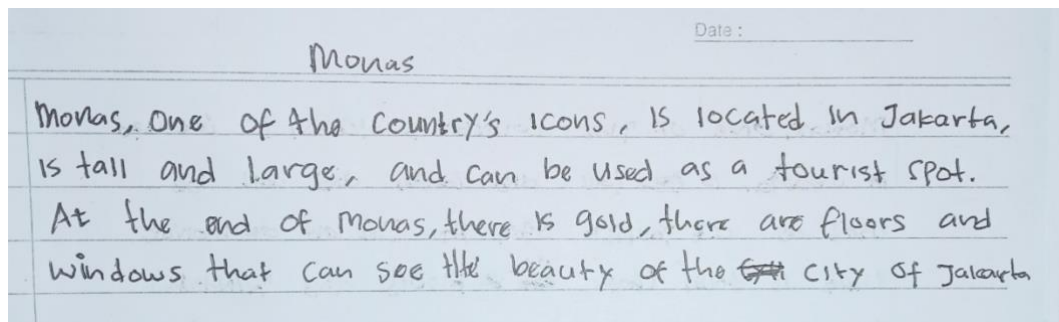 Date :
Monas
Monas, one of the country's icons, is located in Jakarta,
is tall and large, and can be used as a tourist spot.
At the end of Monas, there is gold, there are floors and
windows that can see the beauty of the city of Jakarta